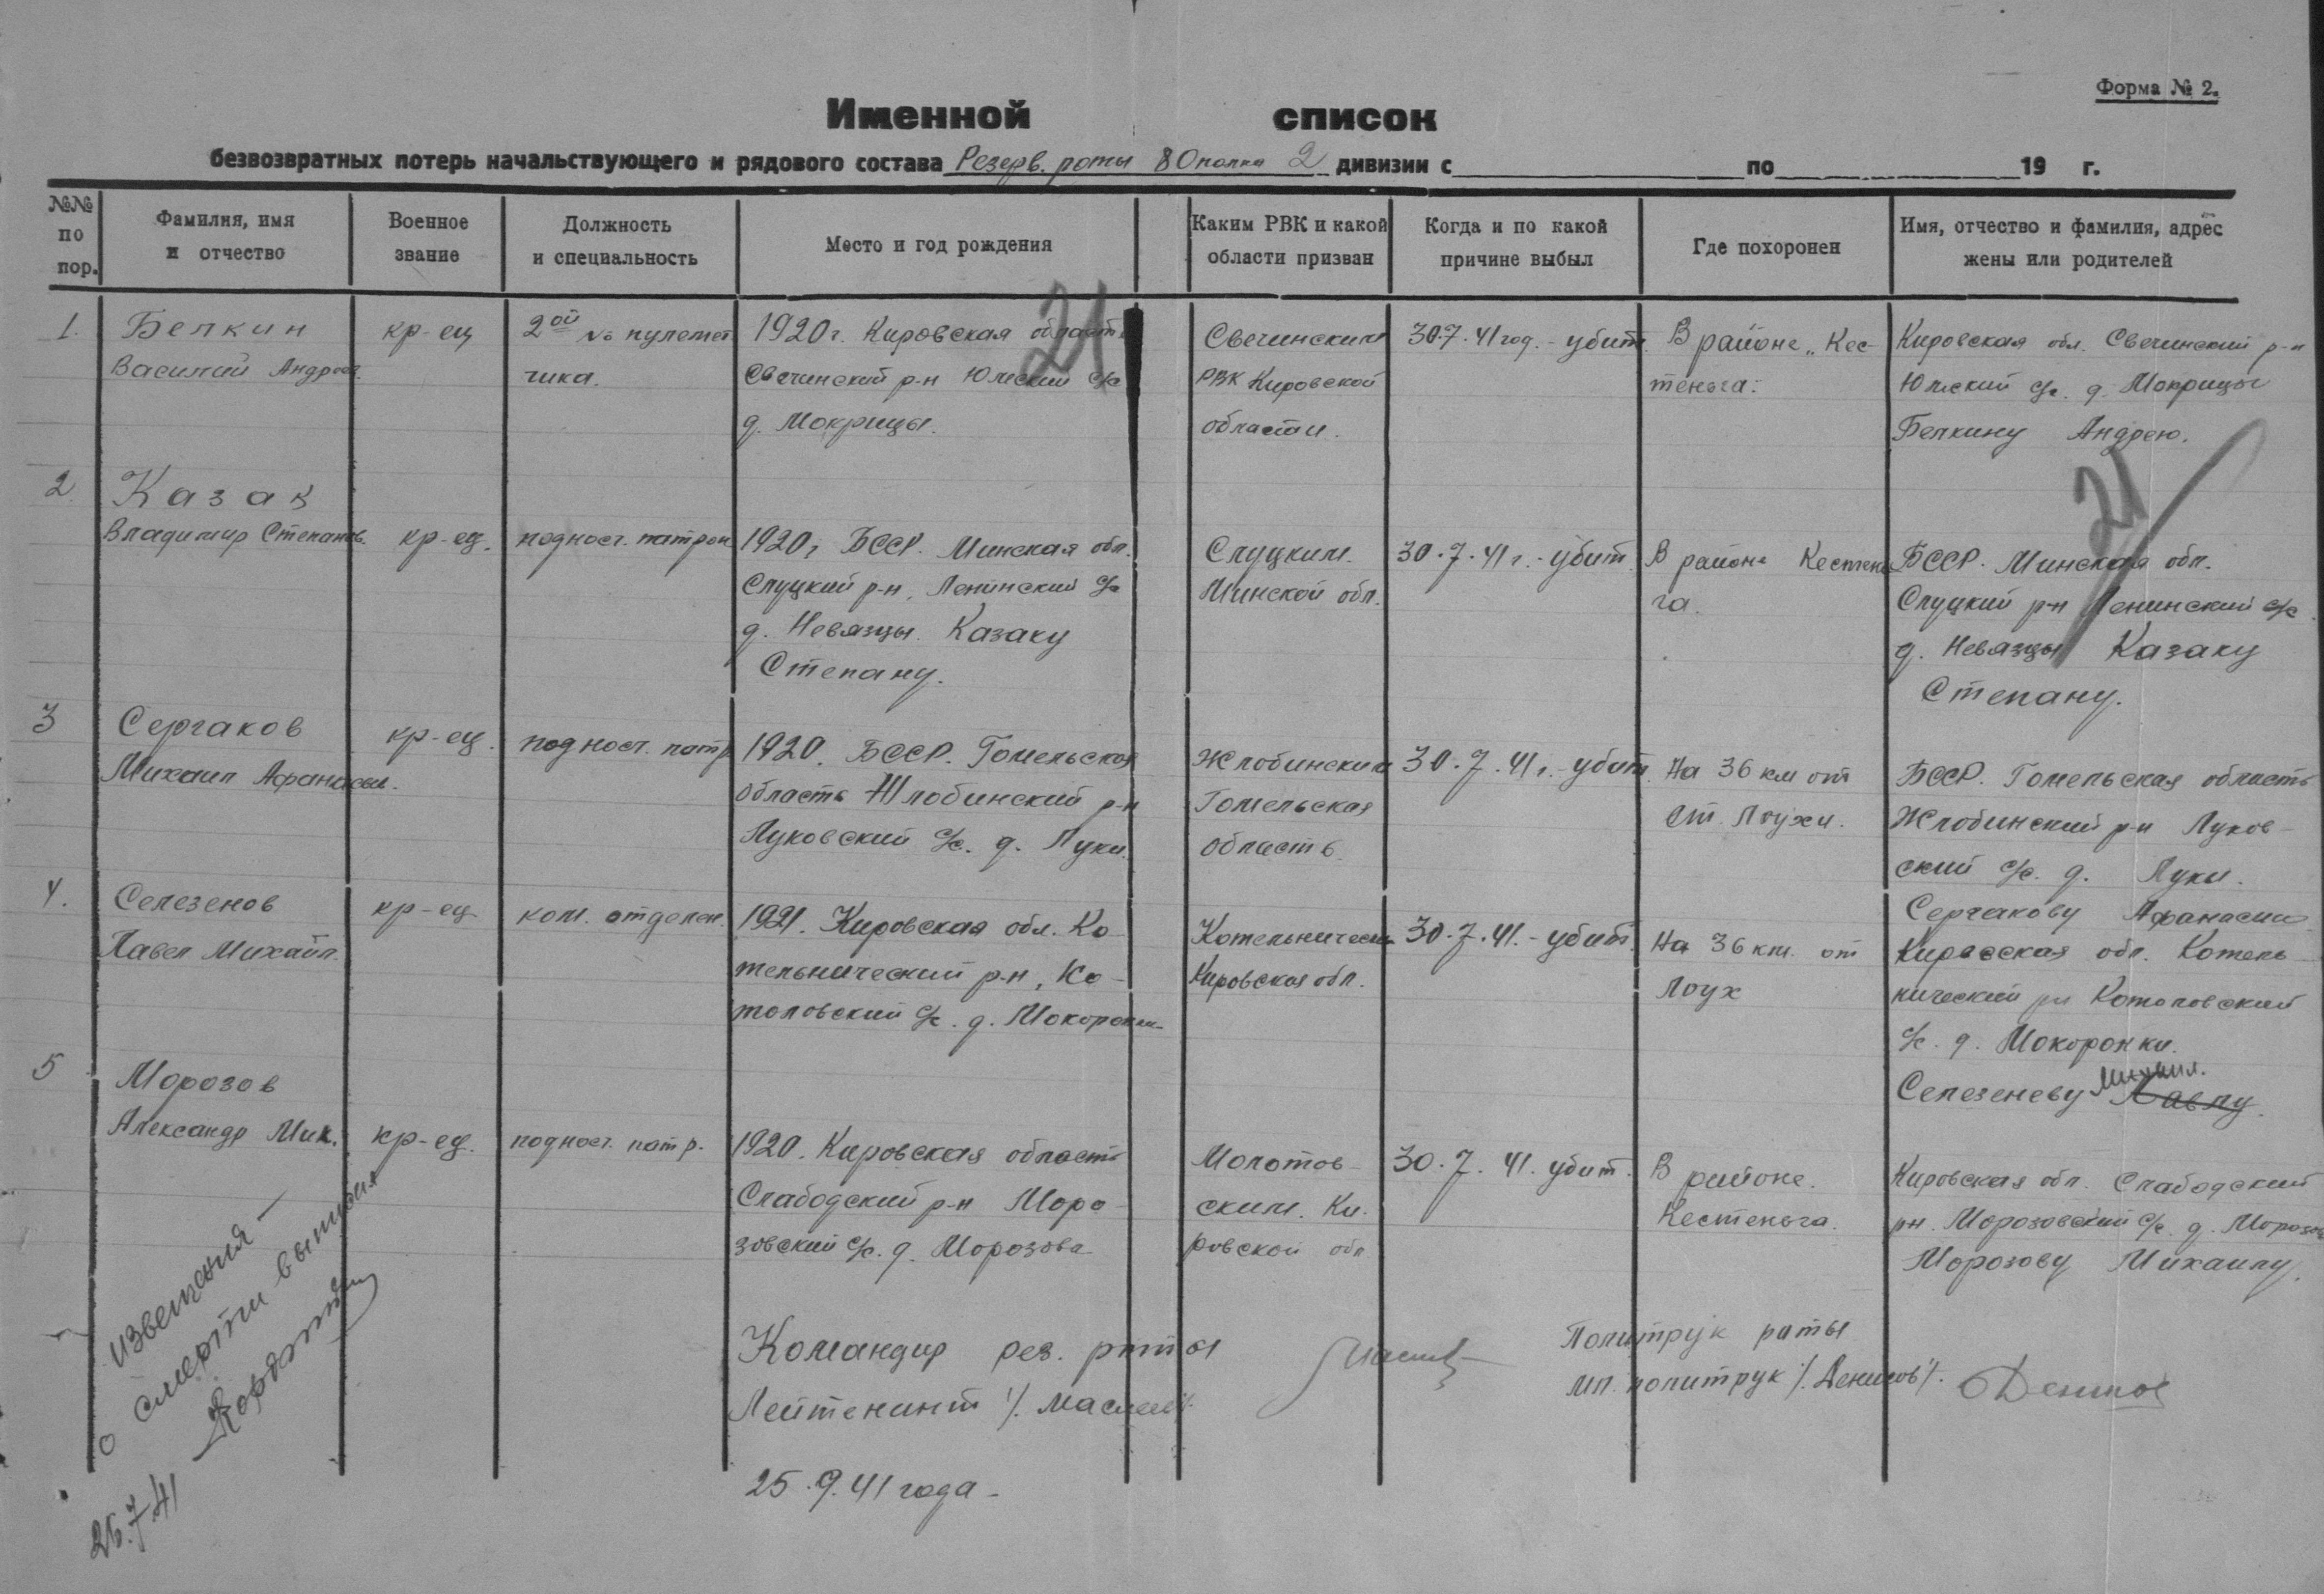 Форма № 2.
Именной список
безвозвратных потерь начальствующего и рядового состава Резерв. роты 80 полка 2 дивизии с по 19 г.
№№ по пор.
Фамилия, имя и отчество
Военное звание
Должность и специальность
Место и год рождения
Каким РВК и какой области призван
Когда и по какой причине выбыл
Где похоронен
Имя, отчество и фамилия, адрес жены или родителей
21
1.
Белкин
Василий Андреев.
кр-ец
2ой № пулемет
чика.
1920 г. Кировская область
Свечинский р-н Юмский с/с
д. Мокрицы.
Свечинским
РВК Кировской
области.
30.7.41 год. - убит.
В районе „Кес-
теньга.
Кировская обл. Свечинский р-н
Юмский с/с. д. Мокрицы
Белкину Андрею.
21
2.
Казак
Владимир Степанов.
кр-ец.
поднос. патрон
1920 г БССР. Минская обл.
Слуцкий р-н, Ленинский с/с
д. Невязцы. Казаку
Степану.
Слуцким.
Минской обл.
30.7.41 г. - убит.
В районе Кестень
га.
БССР. Минская обл.
Слуцкий р-н Ленинский с/с.
д. Невязцы Казаку
Степану.
3
Сергаков
Михаил Афанасьев.
кр-ец.
поднос. патр.
1920. БССР. Гомельская
область Жлобинский р-н
Луковский с/с. д. Луки.
Жлобинским
Гомельская
область.
30.7.41 г. - убит.
На 36 км от
ст. Лоухи.
БССР. Гомельская область
Жлобинский р-н Луков-
ский с/с. д. Луки.
Сергакову Афанасию
4.
Селезенов
Павел Михайл.
кр-ец
ком. отделен.
1921. Кировская обл. Ко-
тельнический р-н, Ко-
толовский с/с. д. Мокоронки.
Котельническ
Кировская обл.
30.7.41. - убит.
На 36 км. от
Лоух
Кировская обл. Котель
нический р-н Котоловский
с/с. д. Мокоронки.
Селезеневу Михаил. Павлу.
5
Морозов
Александр Мих.
кр-ец.
поднос. патр.
1920. Кировская область
Слабодский р-н Моро-
зовский с/с. д. Морозова
Молотов-
ским. Ки-
ровской обл
30.7.41. убит.
В районе.
Кестеньга.
Кировская обл. Слабодский
рн. Морозовский с/с. д. Морозов
Морозову Михаилу.
извещения
о смерти
Командир рез. роты
Лейтенант /.
Политрук роты
мл. политрук /. Денисов /.
25.9.41 года -